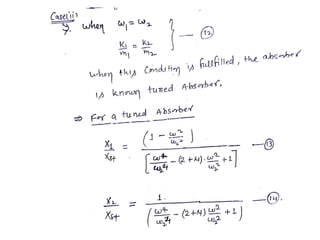 Case(ii):
→ when ω₁ = ω₂
K₁/m₁ = K₂/m₂ } — (12)
when this Condition is fullfilled, the absorber
is known tuned Absorber.
⇒ For a tuned Absorber
X₁/Xst = (1 - ω²/ω₂²) / [ω⁴/ω₂⁴ - (2+μ).ω²/ω₂² + 1] — (13)
X₂/Xst = 1 / (ω⁴/ω₂⁴ - (2+μ) ω²/ω₂² + 1) — (14).